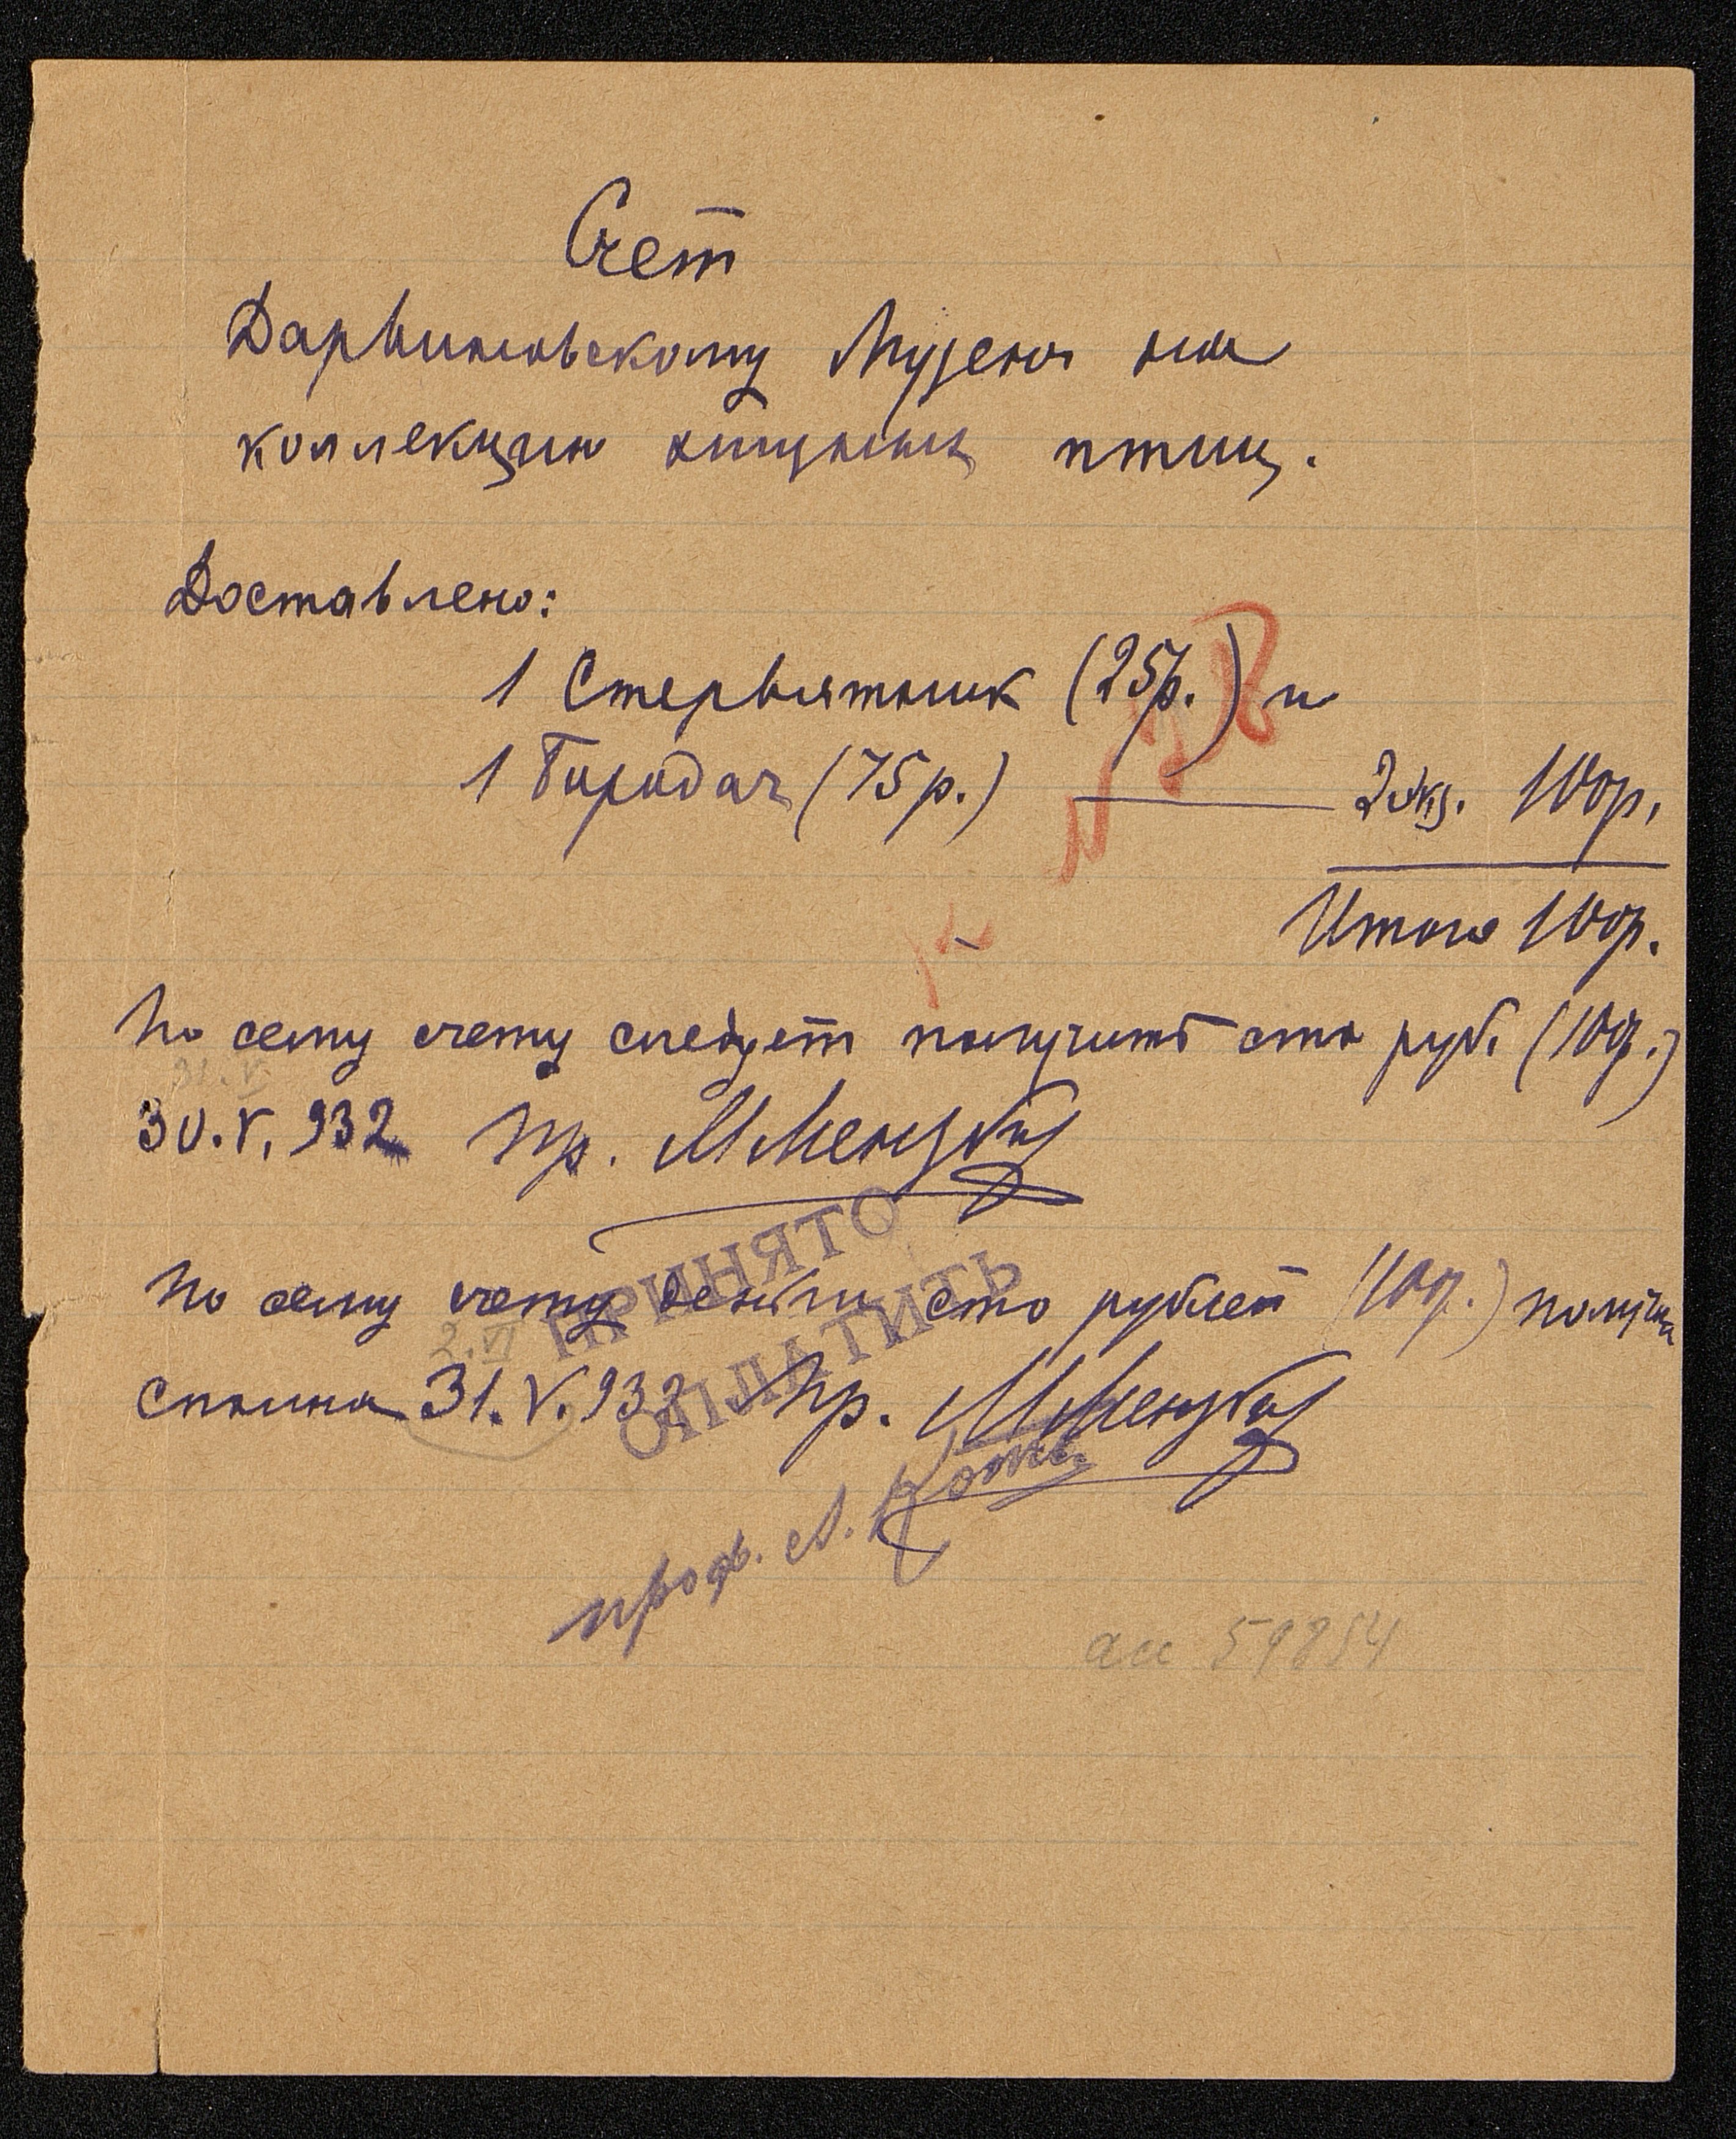 Счет
Дарвиновскому Музею на
коллекцию хищных птиц.
Доставлено:
1 Стервятник (25р.) и
1 Бородач (75р.) — 2 экз. 100р.
Итого 100р.
По сему счету следует получить сто руб. (100р.)
30.V.932 Пр. М Мензбир
ПРИНЯТО
По сему счету деньги сто рублей (100р.) получил
2.VI
ОПЛАТИТЬ
сполна 31.V.932 Пр. М Мензбир
проф. А. Котс
акс 59854